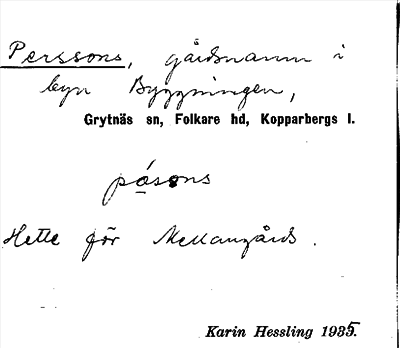 Perssons, gårdsnamn i
byn Byggningen,
Grytnäs sn, Folkare hd, Kopparbergs l.
pásons
Hette för Mellangårds.
Karin Hessling 1935.